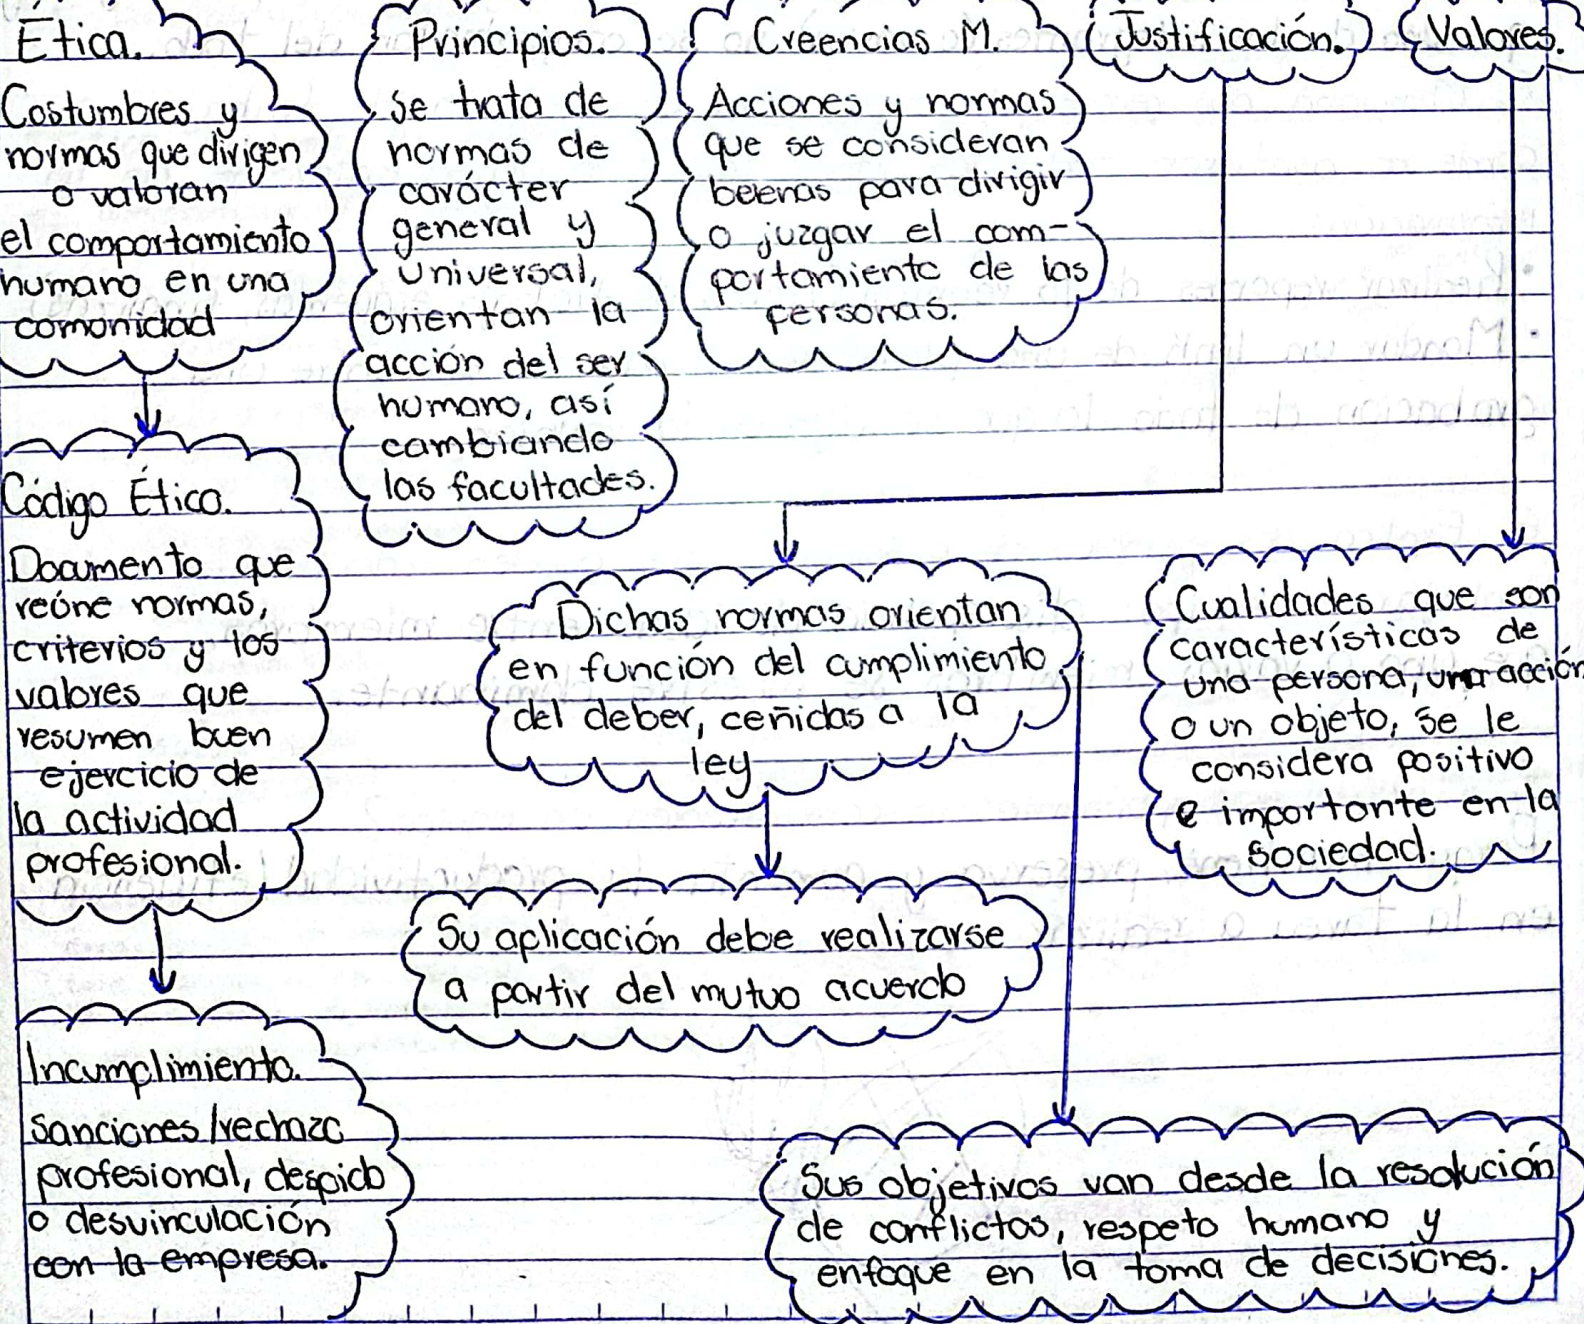 Ética.
Costumbres y
normas que dirigen
o valoran
el comportamiento
humano en una
comunidad
Código Ético.
Documento que
reúne normas,
criterios y los
valores que
resumen buen
ejercicio de
la actividad
profesional.
Incumplimiento.
Sanciones/rechazo
profesional, despido
o desvinculación
con la empresa.
Principios.
Se trata de
normas de
carácter
general y
universal,
orientan la
acción del ser
humano, así
cambiando
las facultades.
Creencias M.
Acciones y normas
que se consideran
buenas para dirigir
o juzgar el com-
portamiento de las
personas.
Justificación.
Dichas normas orientan
en función del cumplimiento
del deber, ceñidas a la
ley
Su aplicación debe realizarse
a partir del mutuo acuerdo
Sus objetivos van desde la resolución
de conflictos, respeto humano y
enfoque en la toma de decisiones.
Valores.
Cualidades que son
características de
una persona, una acción
o un objeto, se le
considera positivo
e importante en la
sociedad.